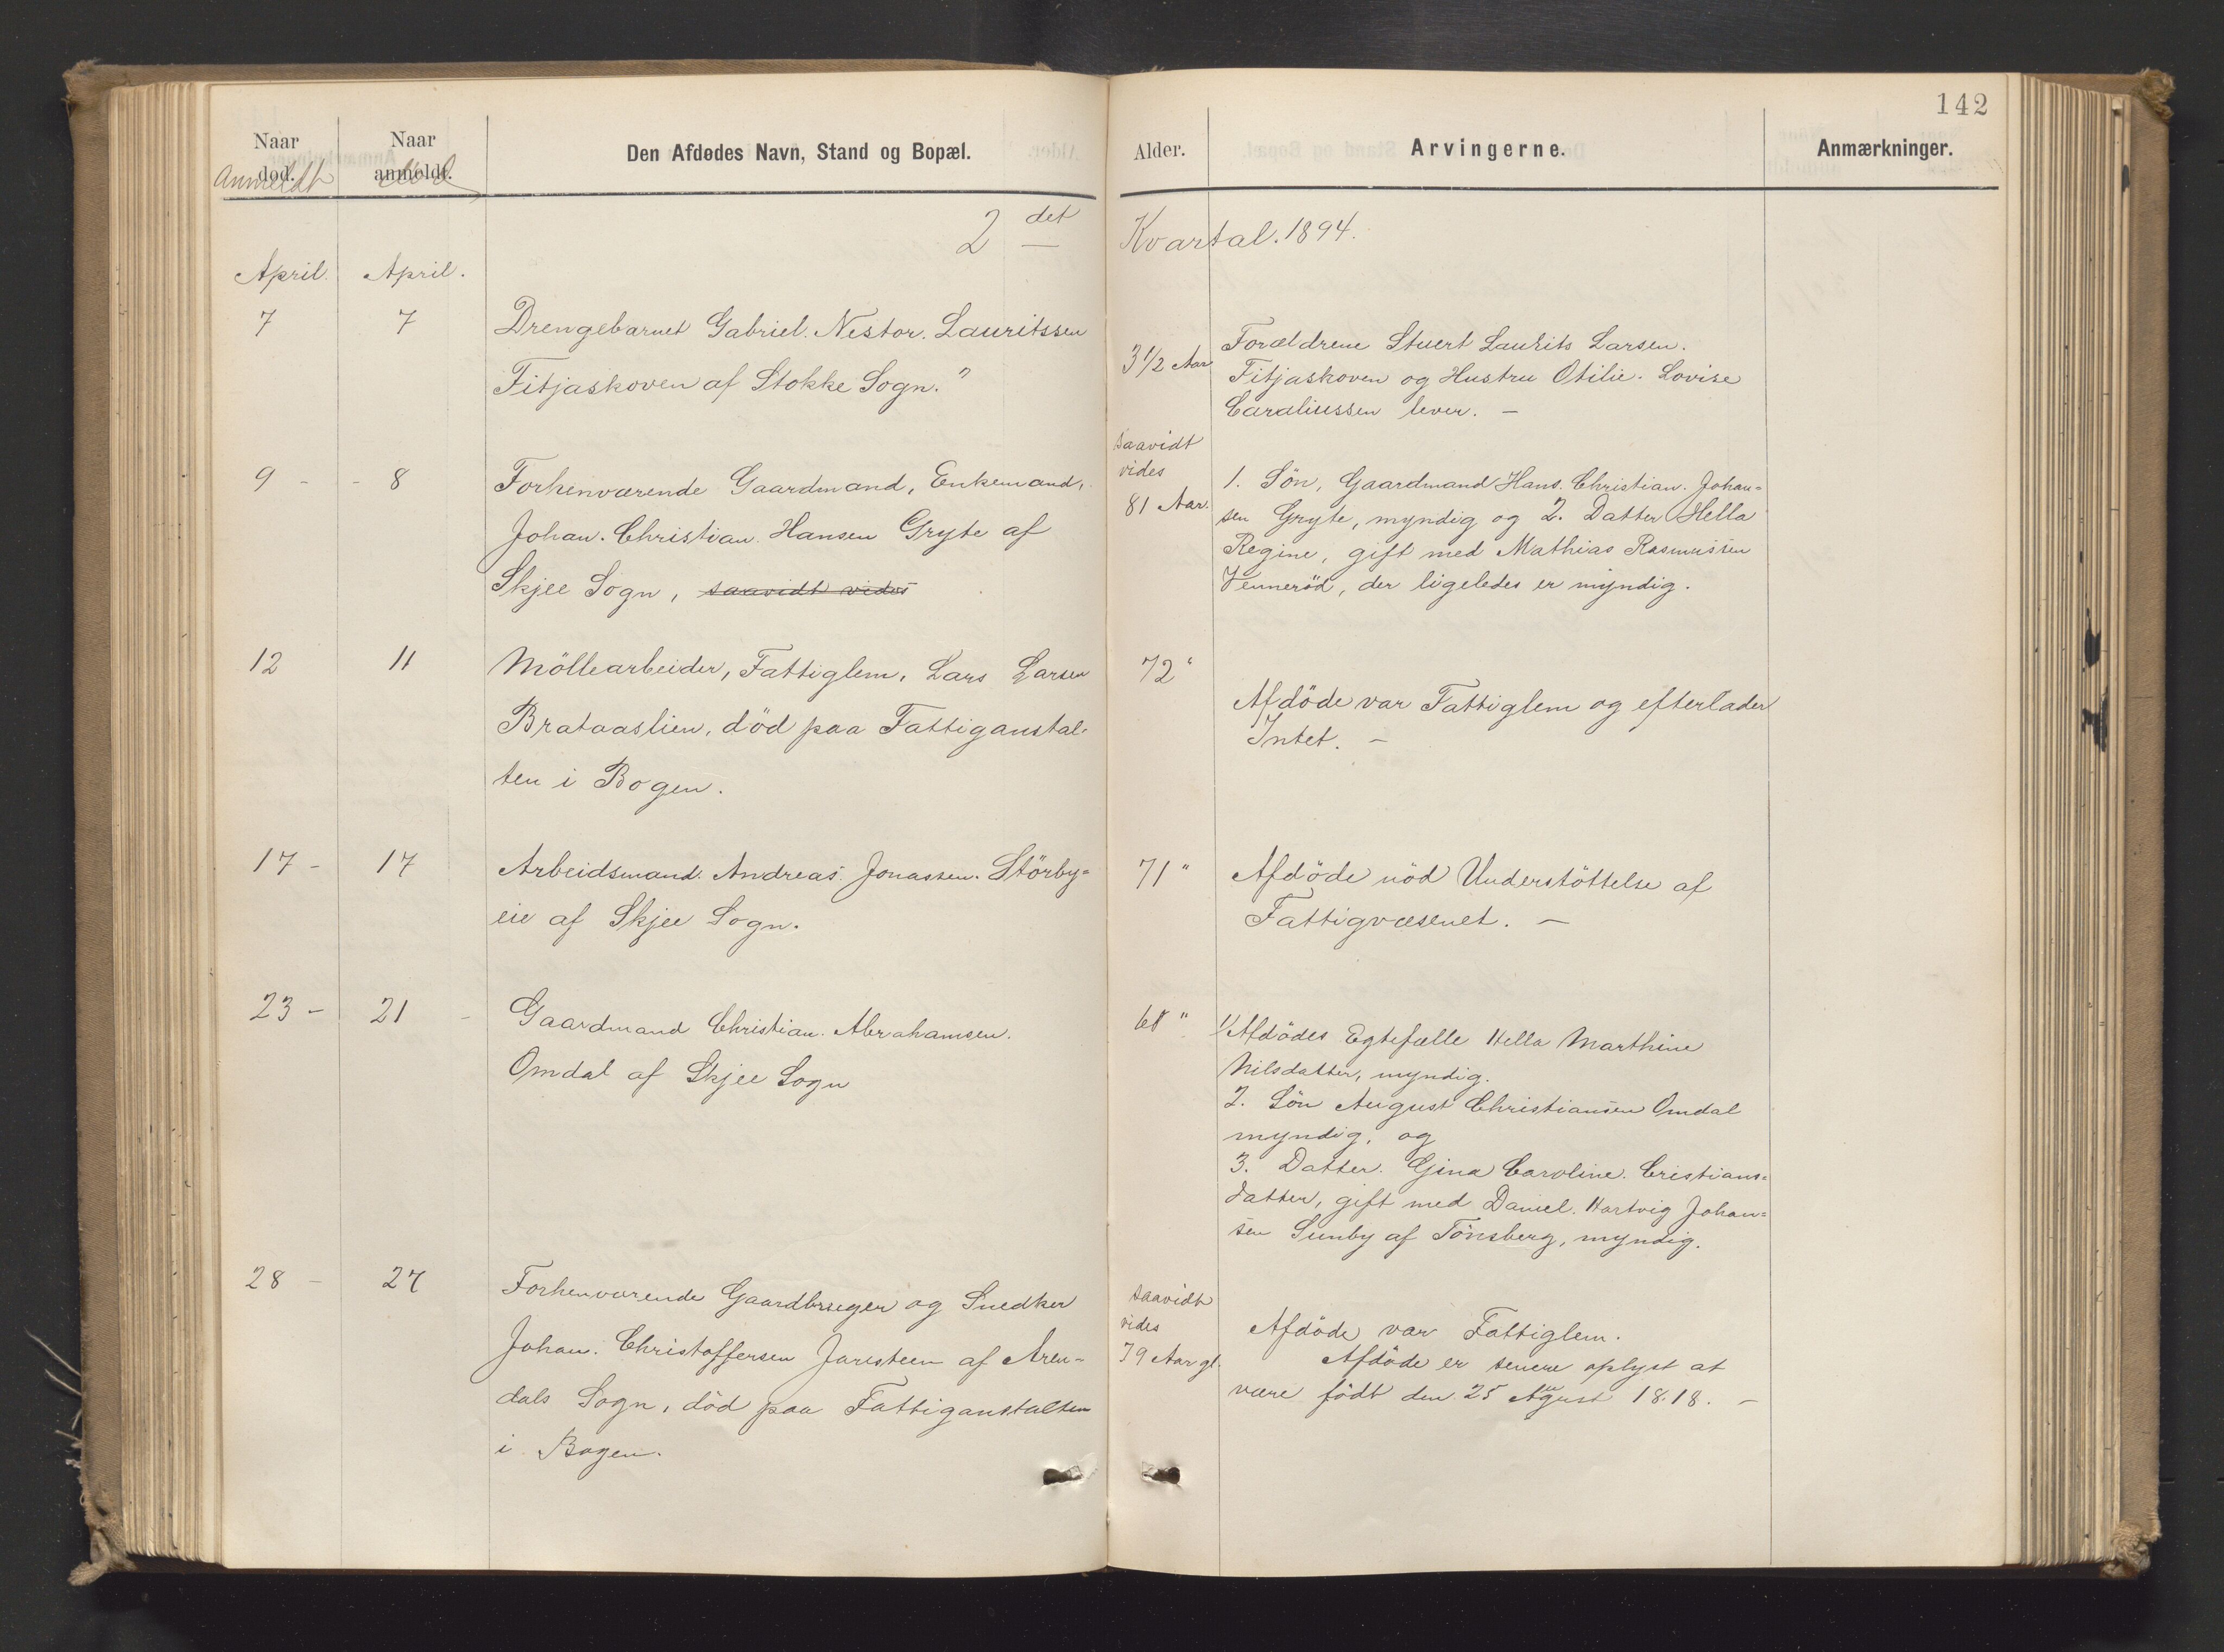 142
Naar død. Naar anmeldt. Den Afdødes Navn, Stand og Bopæl. Alder. Arvingerne. Anmærkninger.
Anmeldt død
2det Kvartal. 1894.
April. April.
7 7 Drengebarnet Gabriel. Nestor. Lauritssen
Fitjaskoven af Stokke Sogn."
3 1/2 Aar
Forældrene Stuert Laurits Larsen.
Fitjaskoven og Hustru Otilie. Lovise
Caraliussen lever. –
9 - - 8 Forhenværende Gaardmand, Enkemand,
Johan. Christian. Hansen Gryte af
Skjee Sogn, saavidt vides
saavidt
vides
81 Aar.
1. Sön, Gaardmand Hans. Christian. Johan=
sen Gryte, myndig og 2. Datter Hella
Regine, gift med Mathias Rasmussen
Venneröd, der ligeledes er myndig.
12 11 Möllearbeider, Fattiglem, Lars Larsen
Brataaslien, död paa Fattiganstal-
ten i Bogen.
72 "
Afdöde var Fattiglem og efterlader
Intet. –
17 - 17 Arbeidsmand. Andreas. Jonassen. Störby=
eie af Skjee Sogn.
71 "
Afdöde nöd Understöttelse af
Fattigvæsenet. –
23 - 21 - Gaardmand Christian. Abrahamsen.
Omdal af Skjee Sogn
68 "
1/ Afdödes Egtefælle Hella Marthine
Nilsdatter, myndig.
2. Sön August Christiansen Omdal
myndig, og
3. Datter. Gina Caroline. Cristians=
datter, gift med Daniel. Hartvig Johan=
sen Sunby af Tönsberg, myndig.
28 - 27 Forhenværende Gaardbruger og Snedker
Johan. Christoffersen Jaresteen af Aren-
dals Sogn, död paa Fattiganstalten
i Bogen.
saavidt
vides
79 Aar gl.
Afdöde var Fattiglem.
Afdöde er senere oplyst at
være födt den 25 August 1818. –